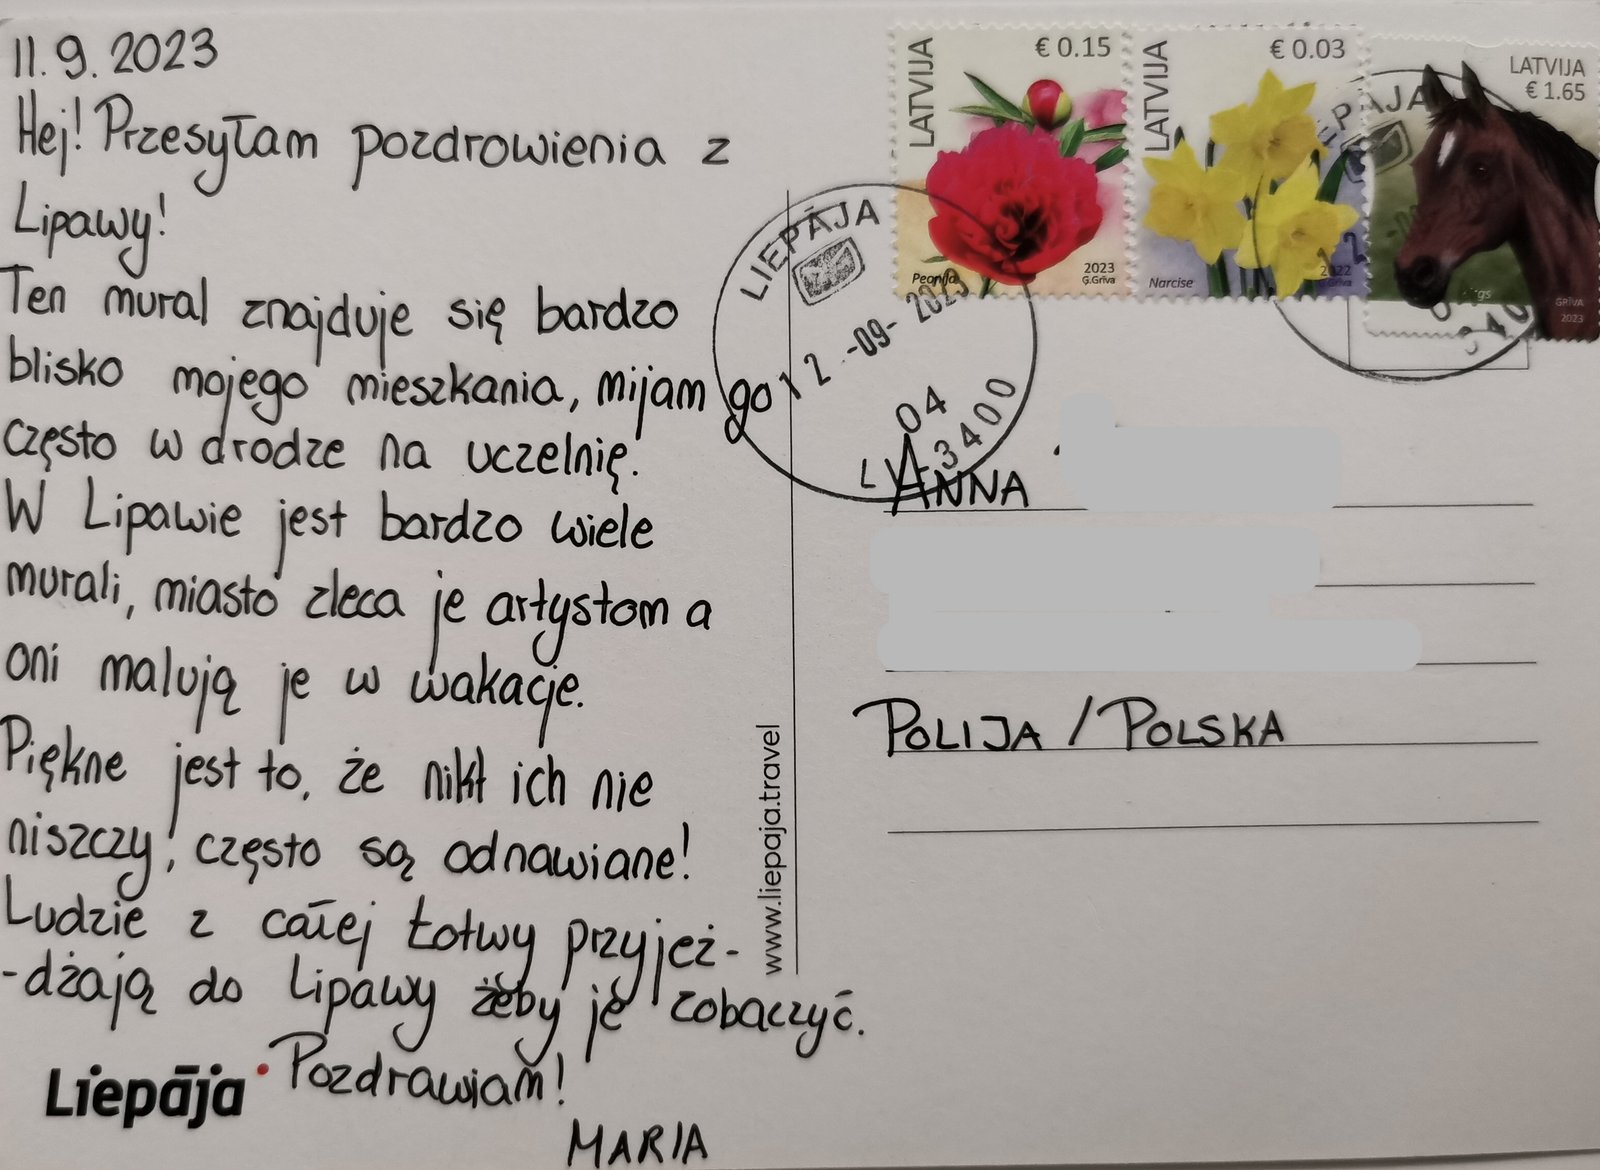 11.9.2023
Hej! Przesyłam pozdrowienia z
Lipawy!
Ten mural znajduje się bardzo
blisko mojego mieszkania, mijam go
często w drodze na uczelnię.
W Lipawie jest bardzo wiele
murali, miasto zleca je artystom a
oni malują je w wakacje.
Piękne jest to, że nikt ich nie
niszczy, często są odnawiane!
Ludzie z całej Łotwy przyjeż-
-dżają do Lipawy żeby je zobaczyć.
Pozdrawiam!
MARIA
Liepāja
www.liepaja.travel
LATVIJA
€ 0.15
Peonija
2023
G.Grīva
LATVIJA
€ 0.03
Narcise
2022
G.Grīva
LATVIJA
€ 1.65
GRĪVA
2023
LIEPĀJA
12.-09-2023
04
LV-3400
ANNA
POLIJA / POLSKA